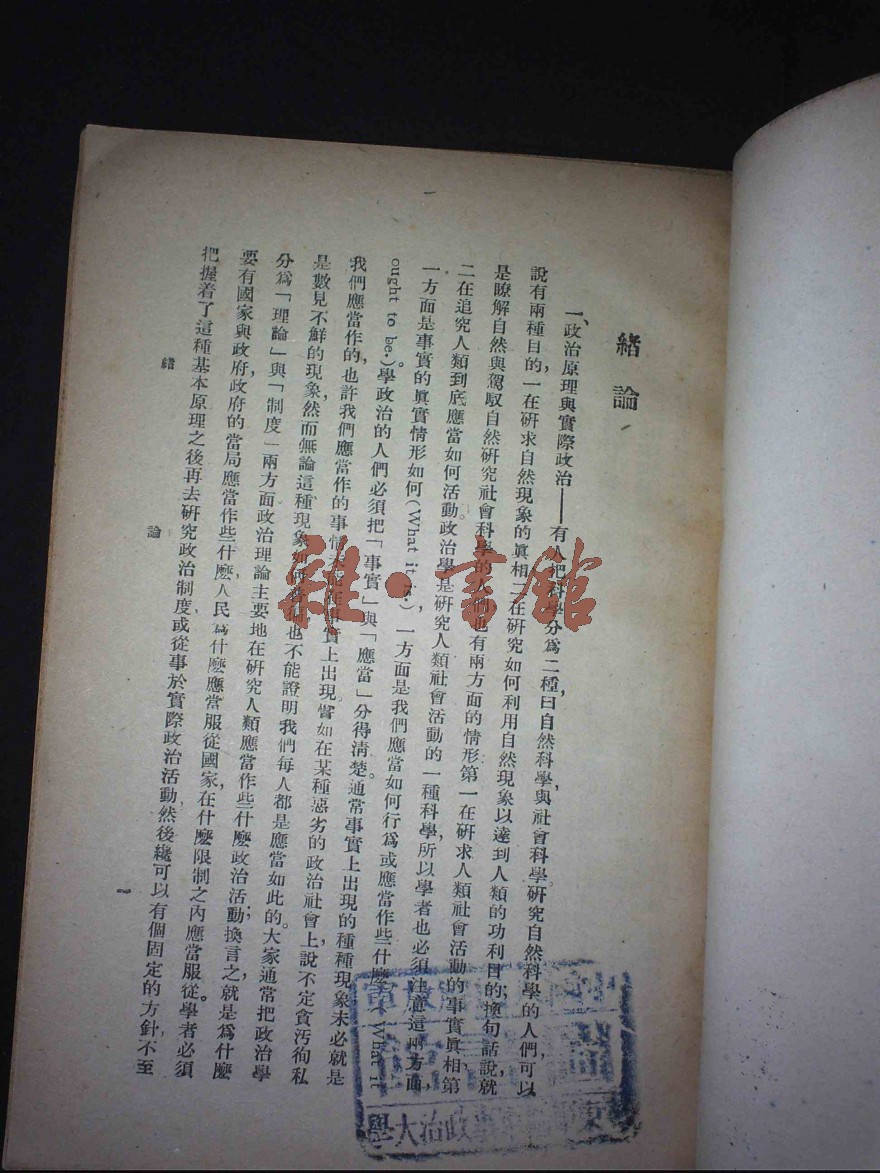 緒論
一、政治原理與實際政治——有人把科學分爲二種，曰自然科學與社會科學。研究自然科學的人們，可以
說有兩種目的，一在研求自然現象的眞相，二在研究如何利用自然現象以達到人類的功利目的；換句話說，就
是瞭解自然與駕馭自然。研究社會科學的人們也有兩方面的情形：第一在研求人類社會活動的事實眞相，第
二在追究人類到底應當如何活動。政治學是研究人類社會活動的一種科學，所以學者也必須注意這兩方面，
一方面是事實的眞實情形如何(What it is.)，一方面是我們應當如何行爲或應當作些什麼(What it
ought to be.)。學政治的人們必須把「事實」與「應當」分得清楚。通常事實上出現的種種現象未必就是
我們應當作的，也許我們應當作的事情未能在事實上出現。嘗如在某種惡劣的政治社會上，說不定貪汚徇私
是數見不鮮的現象，然而無論這種現象如何普遍，也不能證明我們每人都是應當如此的。大家通常把政治學
分爲「理論」與「制度」兩方面。政治理論主要地在研究人類應當作些什麼政治活動；換言之，就是爲什麼
要有國家與政府，政府的當局應當作些什麼，人民爲什麼應當服從國家，在什麼限制之內應當服從。學者必須
把握着了這種基本原理之後，再去研究政治制度或從事於實際政治活動，然後纔可以有個固定的方針，不至
緒論
一
雜·書館
政治大學